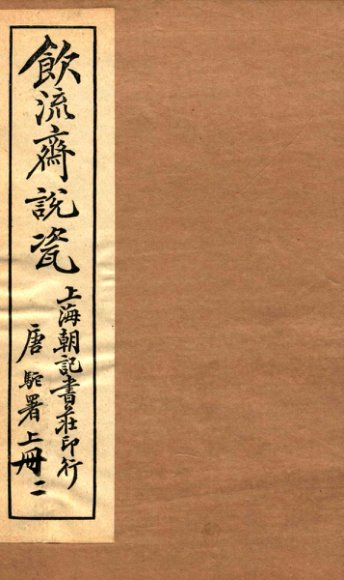 飲流齋說瓷
上海朝記書莊印行
唐駝署上冊二